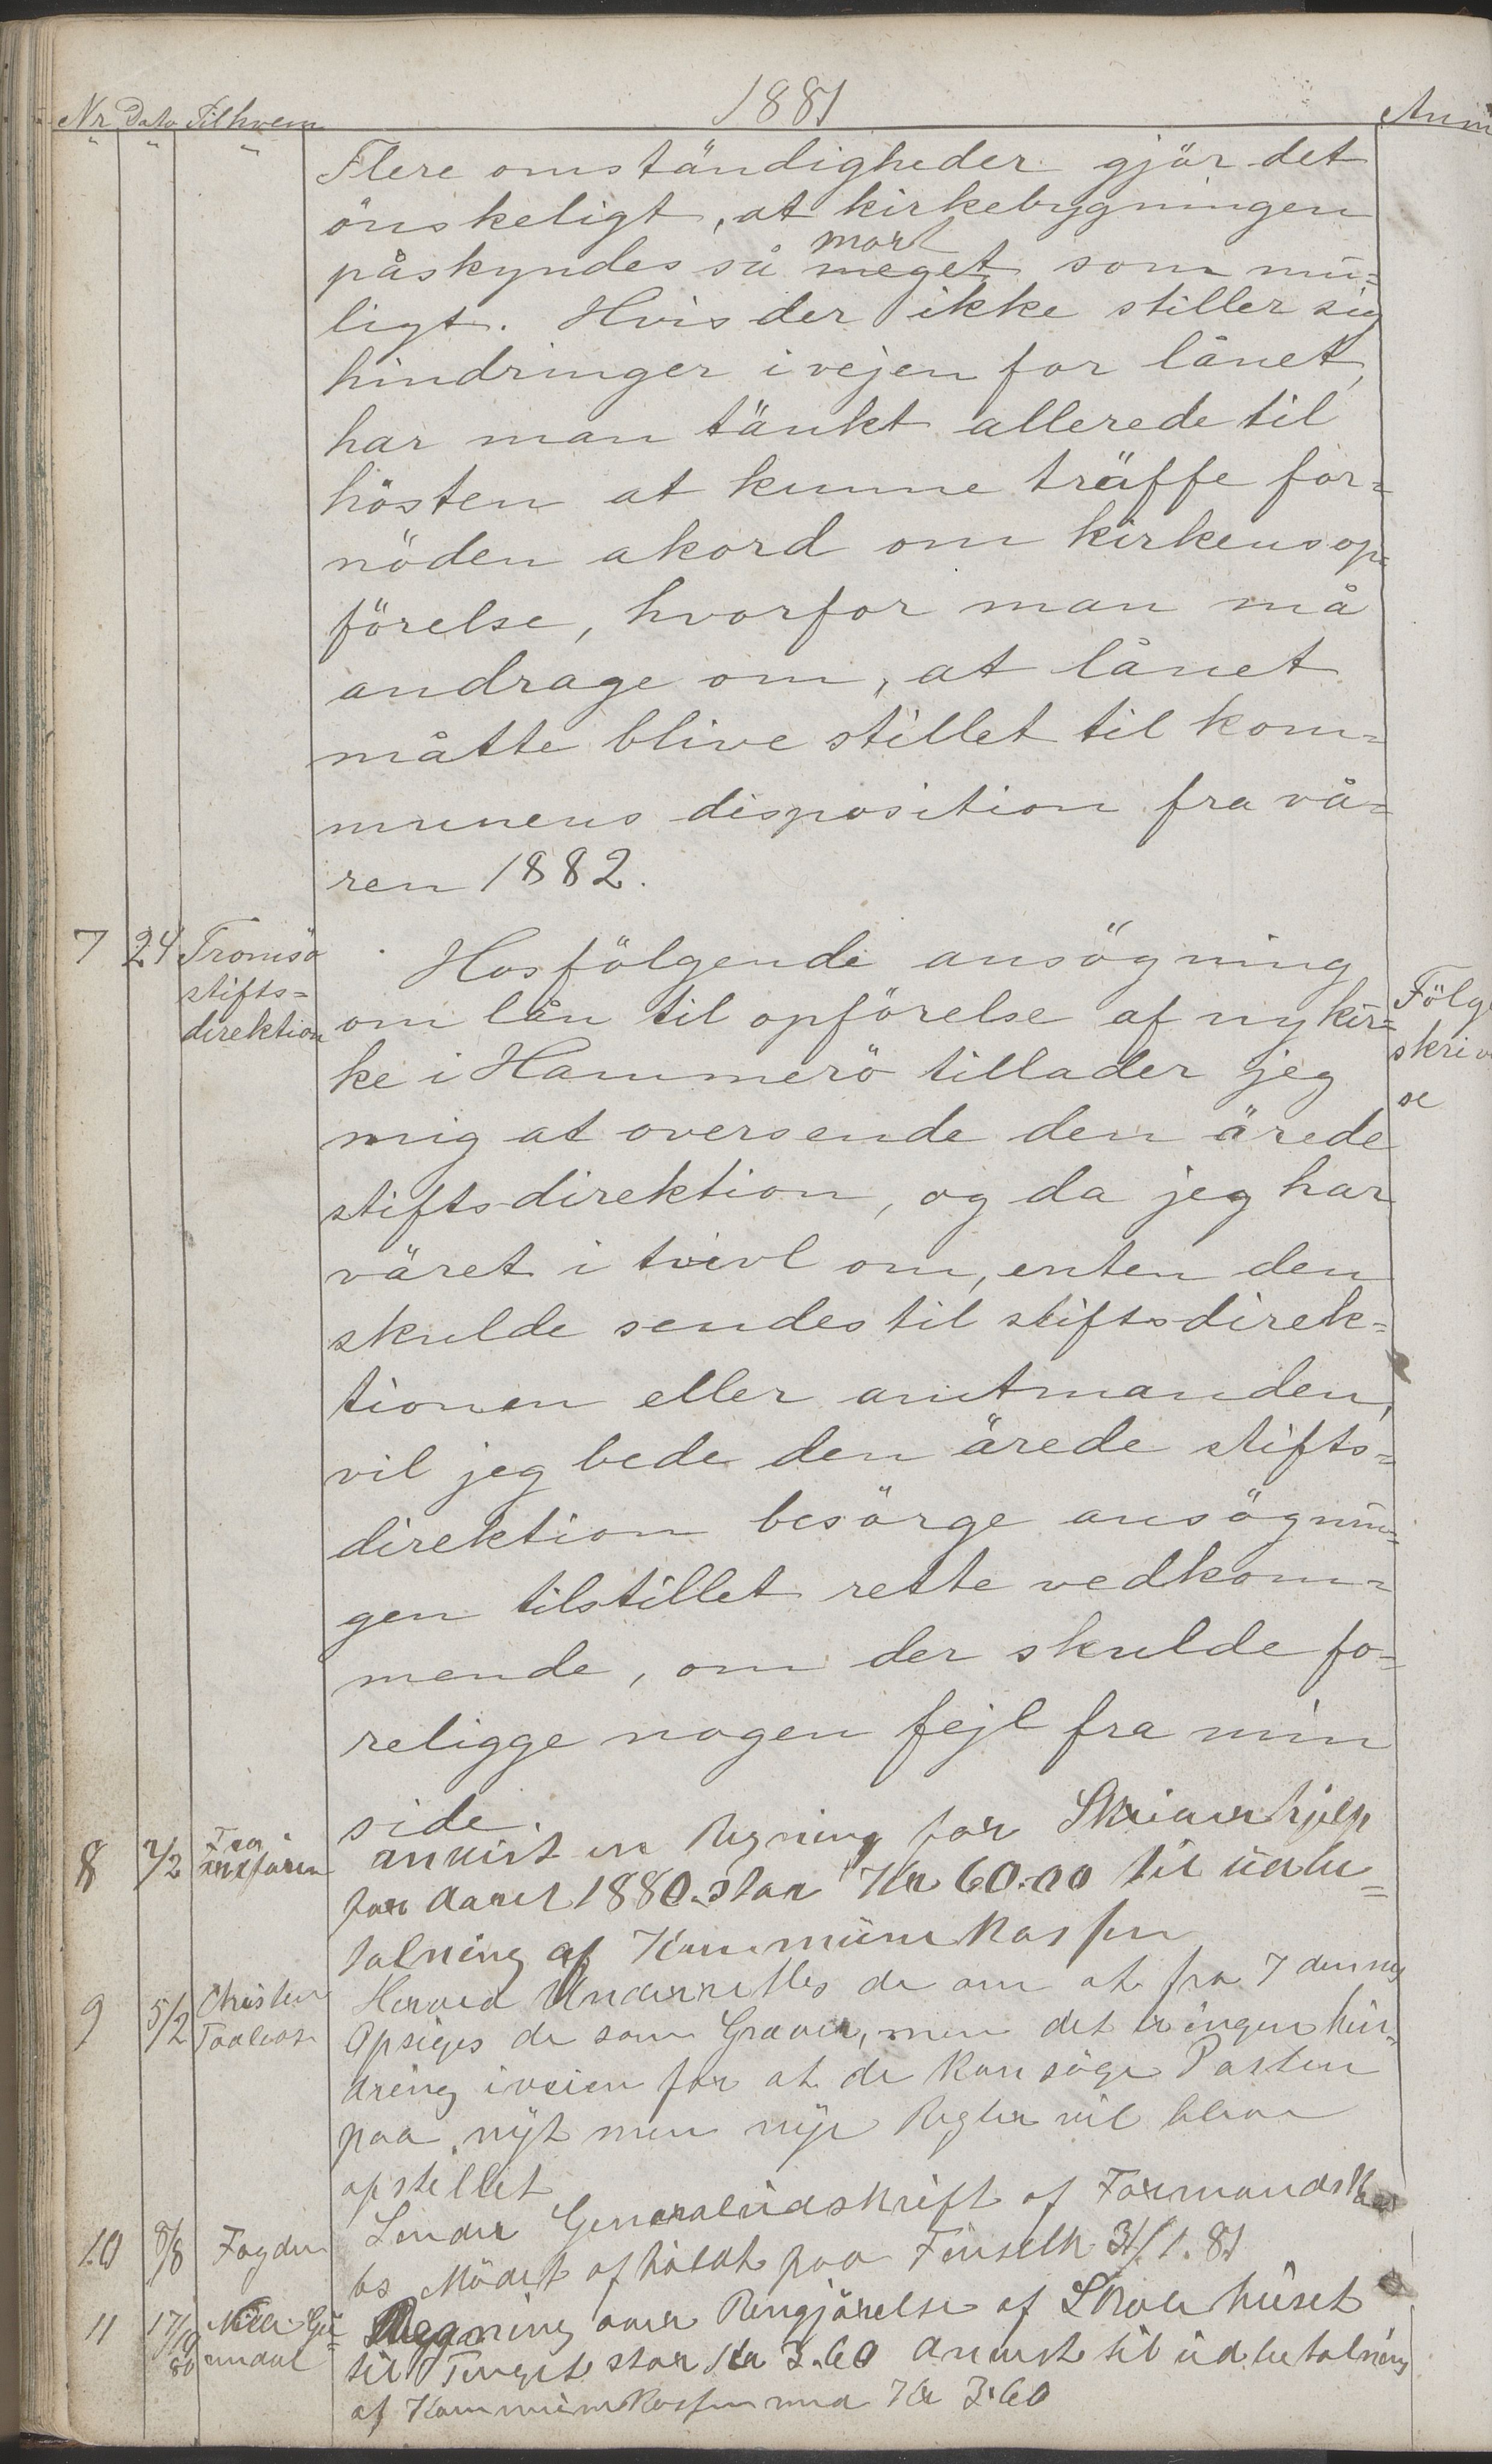 1881
Nr Dato Til hvem
Anm
Flere omständigheder gjör det
önskeligt, at kirkebygningen
mort
påskyndes så meget som mu=
ligt. Hvis der ikke stiller sig
hindringer i vejen for lånet,
har man tänkt allerede til
hösten at kunne träffe for=
nöden akord om kirkens op=
förelse, hvorfor man må
andrage om, at lånet
måtte blive stillet til kom=
munens disposition fra vå=
ren 1882.
7 24 Tromsö
stifts=
direktion
Hosfölgende ansögning
om lån til opförelse af ny kir=
ke i Hammerö tillader jeg
mig at oversende den ärede
stiftsdirektion, og da jeg har
väret i tvivl om, enten den
skulde sendes til stiftsdirek=
tionen eller amtmanden,
vil jeg bede den ärede stifts=
direktion besörge ansögnin=
gen tilstillet rette vedkom=
mende, om der skulde fo=
religge nogen fejl fra min
side.
Fölge
skrive
se
8 7/2
anvist en Regning for Skriverhjelp
for Aaret 1880 stor Kr 60.00 til udbe=
talning af Kommunekassen
9 5/2 Christen
Herved Underrettes de om at fra 7 dennes
Opsiges de som Graver, men det er ingen hin=
dring iveien for at de kan söge Posten
paa nyt men nye Regler vil blive
opstellet
10 8/8 Fogden
Sender Generaludskrift af Formandska
bs Mödet afholdt paa Finselh 31/1.81
11 17/10 80
Regning over Rengjörelse af Skolehuset
til Tinget stor Kr 3.60 Anvist til udbetalning
af Kommunekassen med Kr 3.60